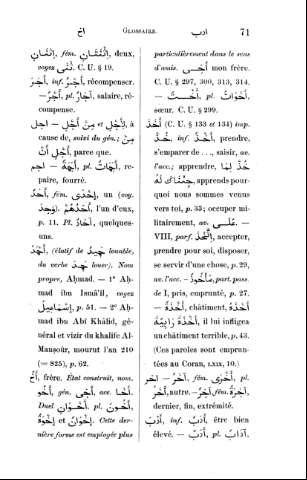 أخ GLOSSAIRE. ادب 71
إِثْنَانِ, fém. إِثْنَتَانِ, deux,
voyez ثُنًى. C. U. § 19.
أَجَرَ, inf. أَجْرٌ, récompenser.
— أَجْرٌ, pl. أُجُورٌ, salaire, ré-
compense.
اجل — أَجْلٌ et مِنْ أَجْلِ, à
cause de, suivi du gén.; مِنْ
أَجْلِ أَنْ, parce que.
اجم — أَجَمَةٌ, pl. آجَامٌ, re-
paire, fourré.
أَحَدٌ, fém. إِحْدَى, un (voy.
وَحَدَ). أَحَدُهُمْ, l'un d'eux,
p. 11. Pl. آحَادٌ, quelques-
uns.
أَحْمَدُ, (élatif de حَمِيدٌ louable,
du verbe حَمِدَ louer). Nom
propre, Aḥmad. — 1° Aḥ-
mad ibn Ismâ'îl, voyez
إِسْمَاعِيلُ, p. 51. — 2° Aḥ-
mad ibn Abî Khâlid, gé-
néral et vizir du khalife Al-
Manṣoûr, mourut l'an 210
(= 825), p. 62.
أَخٌ, frère. État construit, nom.
أَخُو, gén. أَخِي, ac. أَخَا.
Duel أَخَوَانِ, pl. أَخُونَ,
إِخْوَةٌ et إِخْوَانٌ. Cette der-
nière forme est employée plus
particulièrement dans le sens
d'amis. أَخِي mon frère.
C. U. § 297, 300, 313, 314.
— أُخْتٌ, pl. أَخَوَاتٌ,
sœur. C. U. § 299.
أَخَذَ (C. U. § 133 et 134) imp.
خُذْ, inf. أَخْذٌ, prendre,
s'emparer de ..., saisir, av.
l'acc.; apprendre,
apprends pour-
quoi nous sommes venus
vers toi, p. 33; occuper mi-
litairement, av. عَلَى. —
VIII, parf. إِتَّخَذَ, accepter,
prendre pour soi, disposer,
se servir d'une chose, p. 29,
av. l'acc. — مَأْخُوذٌ, part. pass.
de I, pris, emprunté, p. 27.
— أَخْذَةٌ, châtiment, أَخْذَةً
أَخْذَةً رَابِيَةً, il lui infligea
un châtiment terrible, p. 43.
(Ces paroles sont emprun-
tées au Coran, LXIX, 10.)
اخر — آخَرُ, fém. أُخْرَى, pl.
أُخَرُ, autre. — آخِرٌ, fém. آخِرَةٌ,
dernier, fin, extrémité.
أَدُبَ, inf. أَدَبٌ, être bien
élevé. — أَدَبٌ, pl. آدَابٌ,